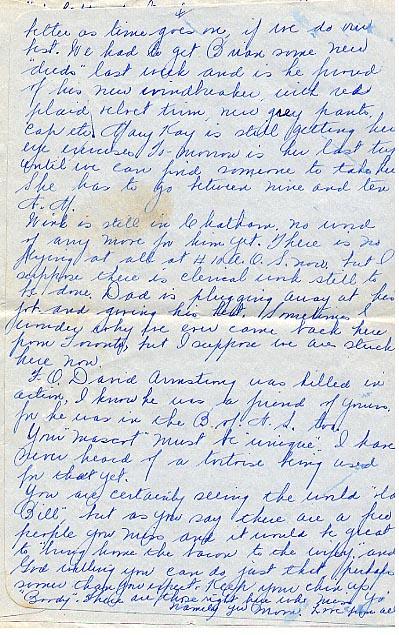 better as time goes on, if we do our
best. We had to get Brian some new
"duds" last week and is he proud
of his new windbreaker, with red
plaid velvet trim, new grey pants,
cap etc. Mary Kay is still getting her
eye exercises. To-morrow is her last trip
until we can find someone to take her
She has to go between nine and ten
A.M.
Wink is still in Chatham, no word
of any more for him yet. There is no
flying at all at 4 now, but I
suppose there is clerical work still to
be done. Dad is plugging away at his
job and giving his best. Sometimes I
wonder why we ever came back here
from Toronto, but I suppose we are stuck
here now.
F.O. David Armstrong was killed in
action, I know he was a friend of yours,
for he was in the B. of N.S. too.
Your "mascot" must be "unique" I have
never heard of a tortoise being used
for that yet.
You are certainly seeing the world "old
Bill" but as you say there are a few
people you miss and it would be great
to "bring home the bacon to the wifey" and
God willing you can do just that perhaps
sooner than you expect. Keep your chin up
There are those right here who miss you
namely yr Mom. Love from all